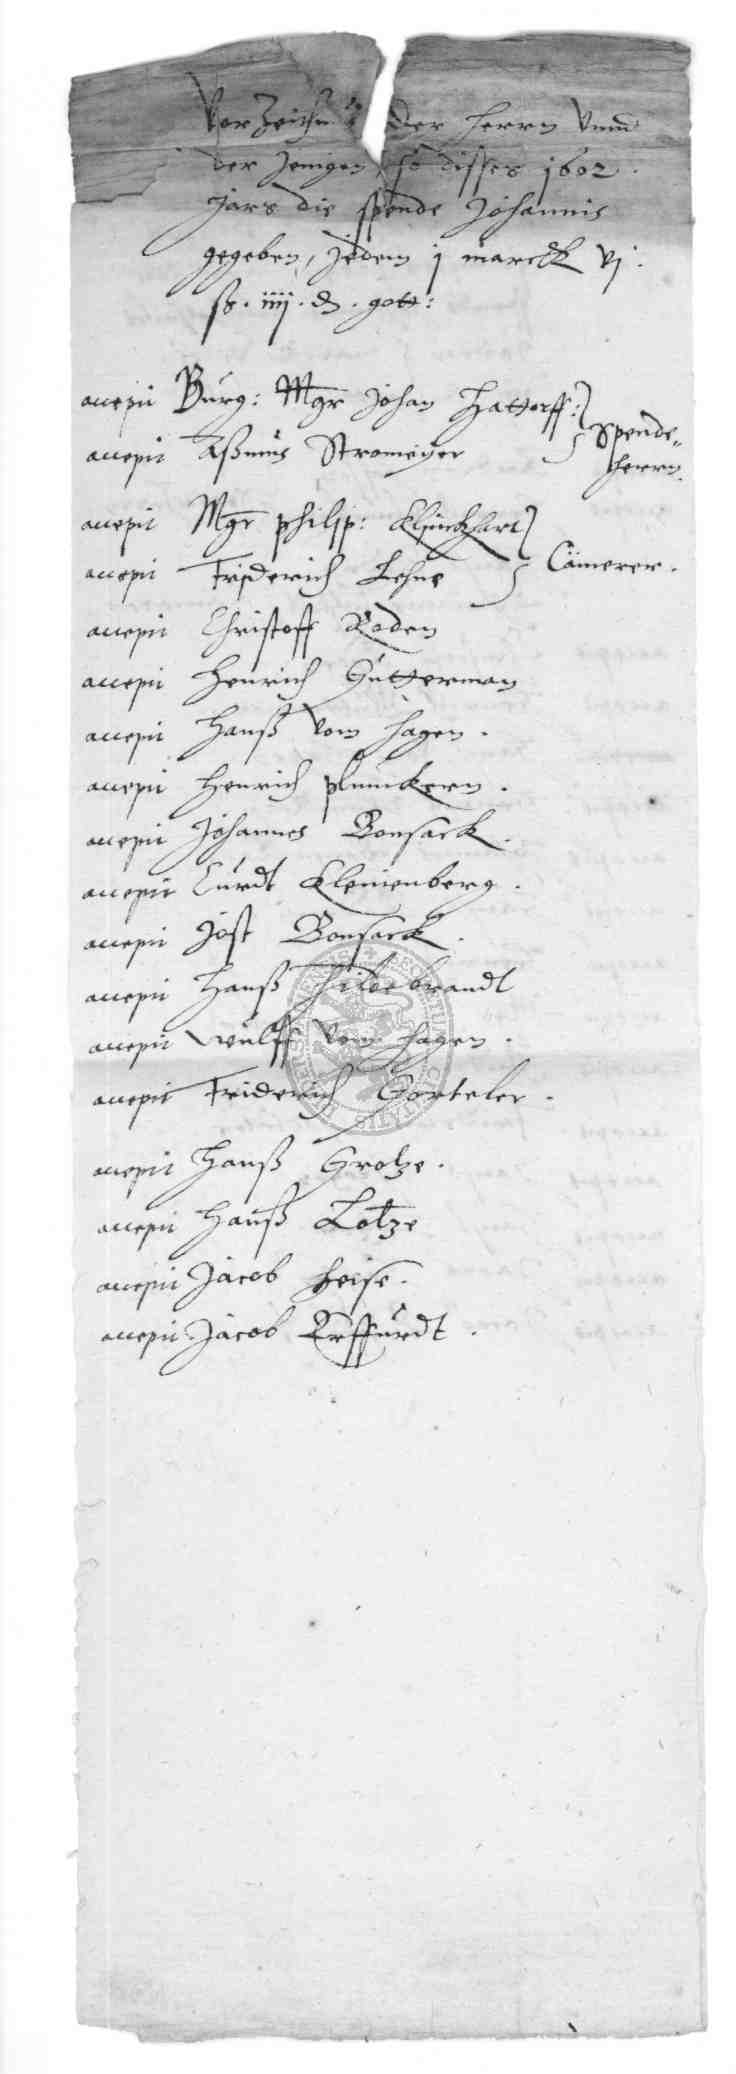 Vorzeichnus der Herrn vnnd
der Jenigen so disses 1602.
Jars die spende Johannis
gegeben, Jedem j marck vj:
ß. iiij. δ. gott:
accepit Burg: Mgr Johan Hattorff:
accepit Aßmus Stromeyer
Spende-
herrn.
accepit Mgr philip: Klinckhart
accepit Friderich Lehne
Cämerer.
accepit Christoff Roden
accepit Henrich Gutterman
accepit Hanß vom Hagen.
accepit Henrich plunckern.
accepit Johannes Bonsack.
accepit Curdt Klemenberg.
accepit Jost Bonsack.
accepit Hanß Hildebrandt
accepit Wulff vom Hagen.
accepit Friderich Gorteler.
accepit Hanß Grotze.
accepit Hanß Lotze
accepit Jacob Heise.
accepit Jacob Erffurdt.